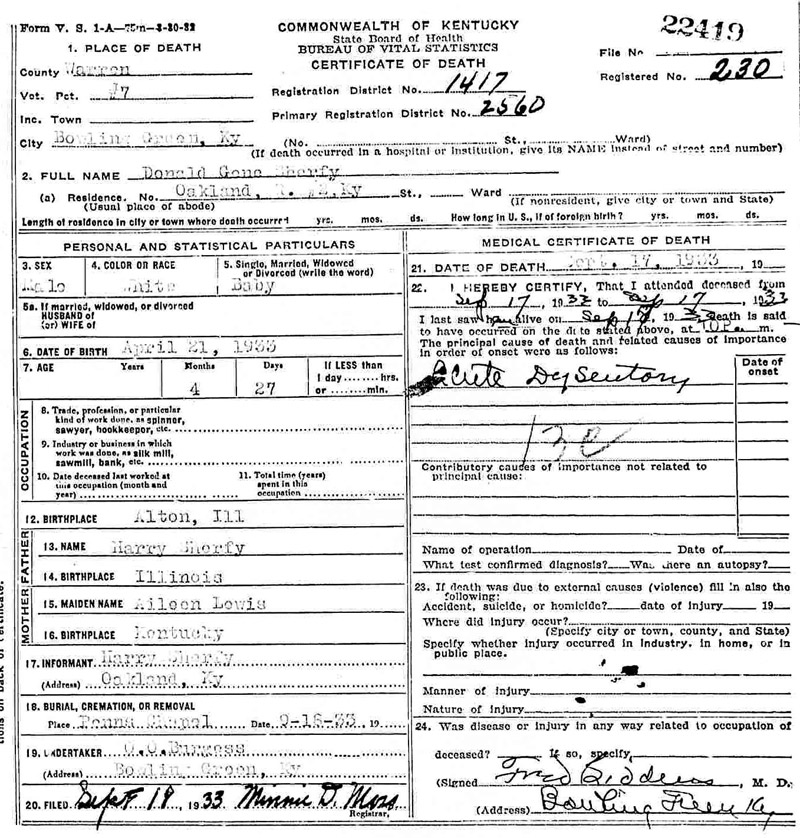 Form V. S. 1-A—75m—3-30-32
22419
COMMONWEALTH OF KENTUCKY
State Board of Health
BUREAU OF VITAL STATISTICS
CERTIFICATE OF DEATH
File No.
Registered No. 230
Registration District No. 1417
Primary Registration District No. 2560
1. PLACE OF DEATH
County Warren
Vot. Pct. #7
Inc. Town
City Bowling Green, Ky (No. St., Ward)
(If death occurred in a hospital or institution, give its NAME instead of street and number)
2. FULL NAME Donald Gene Sherfy
(a) Residence. No. Oakland, R. Ky St., Ward
(Usual place of abode) (If nonresident, give city or town and State)
Length of residence in city or town where death occurred yrs. mos. ds. How long in U. S., if of foreign birth? yrs. mos. ds.
PERSONAL AND STATISTICAL PARTICULARS
3. SEX 4. COLOR OR RACE 5. Single, Married, Widowed
or Divorced (write the word)
Male White Baby
5a. If married, widowed, or divorced
HUSBAND of
(or) WIFE of
6. DATE OF BIRTH April 21, 1933
7. AGE Years Months Days If LESS than
1 day ........ hrs.
4 27 or ........ min.
OCCUPATION
8. Trade, profession, or particular
kind of work done, as spinner,
sawyer, bookkeeper, etc.
9. Industry or business in which
work was done, as silk mill,
sawmill, bank, etc.
10. Date deceased last worked at
this occupation (month and
year)
11. Total time (years)
spent in this
occupation
12. BIRTHPLACE Alton, Ill
FATHER
13. NAME Harry Sherfy
14. BIRTHPLACE Illinois
MOTHER
15. MAIDEN NAME Aileen Lewis
16. BIRTHPLACE Kentucky
17. INFORMANT Harry Sherfy
(Address) Oakland, Ky
18. BURIAL, CREMATION, OR REMOVAL
Place Penns Chapel Date 9-18-33 19
19. UNDERTAKER O.O.Burgess
(Address) Bowling Green, Ky
20. FILED Sept 19, 1933 Minnie D. Moss
Registrar,
MEDICAL CERTIFICATE OF DEATH
21. DATE OF DEATH Sept. 17, 1933, 19
22. I HEREBY CERTIFY, That I attended deceased from
Sep 17, 1933 to Sep 17, 1933
I last saw him alive on Sep 17, 1933 death is said
to have occurred on the date stated above, at 10 P m.
The principal cause of death and related causes of importance
in order of onset were as follows:
Date of
onset
Acute Dysentory
13c
Contributory causes of importance not related to
principal cause:
Name of operation Date of
What test confirmed diagnosis? Was there an autopsy?
23. If death was due to external causes (violence) fill in also the
following:
Accident, suicide, or homicide? date of injury 19
Where did injury occur?
(Specify city or town, county, and State)
Specify whether injury occurred in industry, in home, or in
public place.
Manner of injury
Nature of injury
24. Was disease or injury in any way related to occupation of
deceased? If so, specify
(Signed) Fred M. D.
(Address) Bowling Green Ky